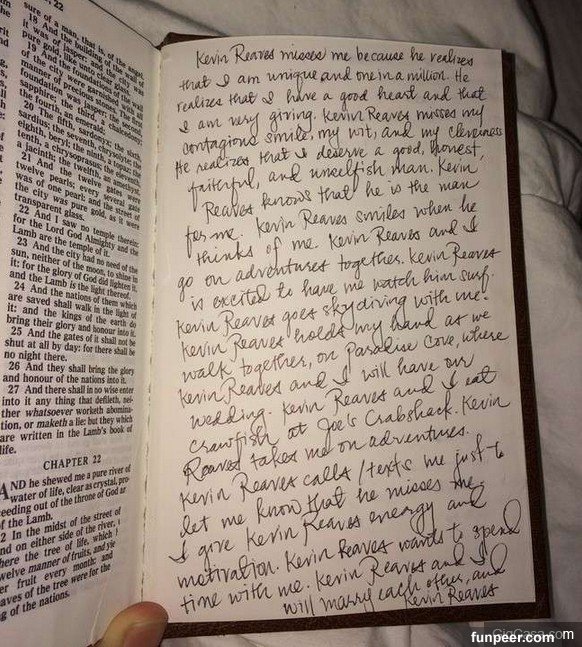 22
sure of a man, that is, of the angel.
18 And the building of the wall
of it was of jasper: and the city was
pure gold, like unto clear glass.
19 And the foundations of the wall
of the city were garnished with all
manner of precious stones. The first
foundation was jasper; the second,
sapphire; the third, a chalcedony;
the fourth, an emerald;
20 The fifth, sardonyx; the sixth,
sardius; the seventh, chrysolyte; the
eighth, beryl; the ninth, a topaz; the
tenth, a chrysoprasus; the eleventh,
a jacinth; the twelfth, an amethyst.
21 And the twelve gates were
twelve pearls; every several gate
was of one pearl: and the street of
the city was pure gold, as it were
transparent glass.
22 And I saw no temple therein:
for the Lord God Almighty and the
Lamb are the temple of it.
23 And the city had no need of the
sun, neither of the moon, to shine in
it: for the glory of God did lighten it,
and the Lamb is the light thereof.
24 And the nations of them which
are saved shall walk in the light of
it: and the kings of the earth do
bring their glory and honour into it.
25 And the gates of it shall not be
shut at all by day: for there shall be
no night there.
26 And they shall bring the glory
and honour of the nations into it.
27 And there shall in no wise enter
into it any thing that defileth, nei-
ther whatsoever worketh abomina-
tion, or maketh a lie: but they which
are written in the Lamb's book of
life.
CHAPTER 22
AND he shewed me a pure river of
water of life, clear as crystal, pro-
ceeding out of the throne of God an
of the Lamb.
2 In the midst of the street of
and on either side of the river,
here the tree of life, which
twelve manner of fruits, and
er fruit every month: and
aves of the tree were for the
g of the nations.
Kevin Reaves misses me because he realizes
that I am unique and one in a million. He
realizes that I have a good heart and that
I am very giving. Kevin Reaves misses my
contagious smile, my wit, and my cleverness
He realizes that I deserve a good, honest,
faithful, and unselfish man. Kevin
Reaves knows that he is the man
for me. Kevin Reaves smiles when he
thinks of me. Kevin Reaves and I
go on adventures together. Kevin Reaves
is excited to have me watch him surf.
Kevin Reaves goes skydiving with me.
Kevin Reaves holds my hand as we
walk together, on Paradise Cove, where
Kevin Reaves and I will have our
wedding. Kevin Reaves and I eat
crawfish at Joe's Crabshack. Kevin
Reaves takes me on adventures.
Kevin Reaves calls/texts me just to
let me know that he misses me.
I give Kevin Reaves energy and
motivation. Kevin Reaves wants to spend
time with me. Kevin Reaves and I
will marry each other, and
Kevin Reaves
funpeer.com